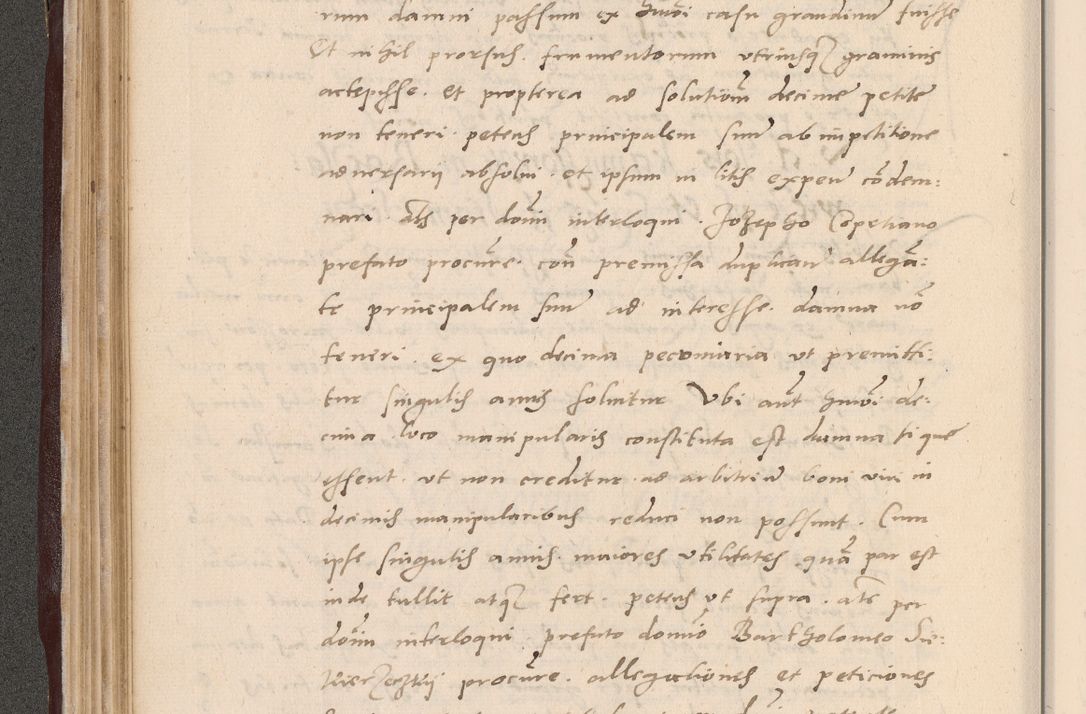 rum damni passum ex hmõi casu grandinum fuisse
Et nihil prorsus frumentorum utriusq graminis
accepisse. Et propterea ad solutiõm decime petite
non teneri. petens principalem suũ ab impetitione
adversarii absolvi. et ipsum in litis expen condem:
nari. als per doĩm interloqui. Jozepho Copetiano
prefato procure. con premissa duplican allegan:
te principalem suũ ad interesse damna nõ
teneri. ex quo decima pecuniaria ut premitti:
tur singulis annis solvitur Ubi aut hmõi de:
cima loco manipularis constituta est damna si que
essent. ut non creditur. ad arbitriũ boni viri in
decimis manipularibus reduci non possunt. Cum
ipse singulis annis maiores utilitates quã par est
inde tullit atq fert. petens ut supra. als per
doĩm interloqui. prefato domino Bartholomeo
procure. allegationes et peticiones